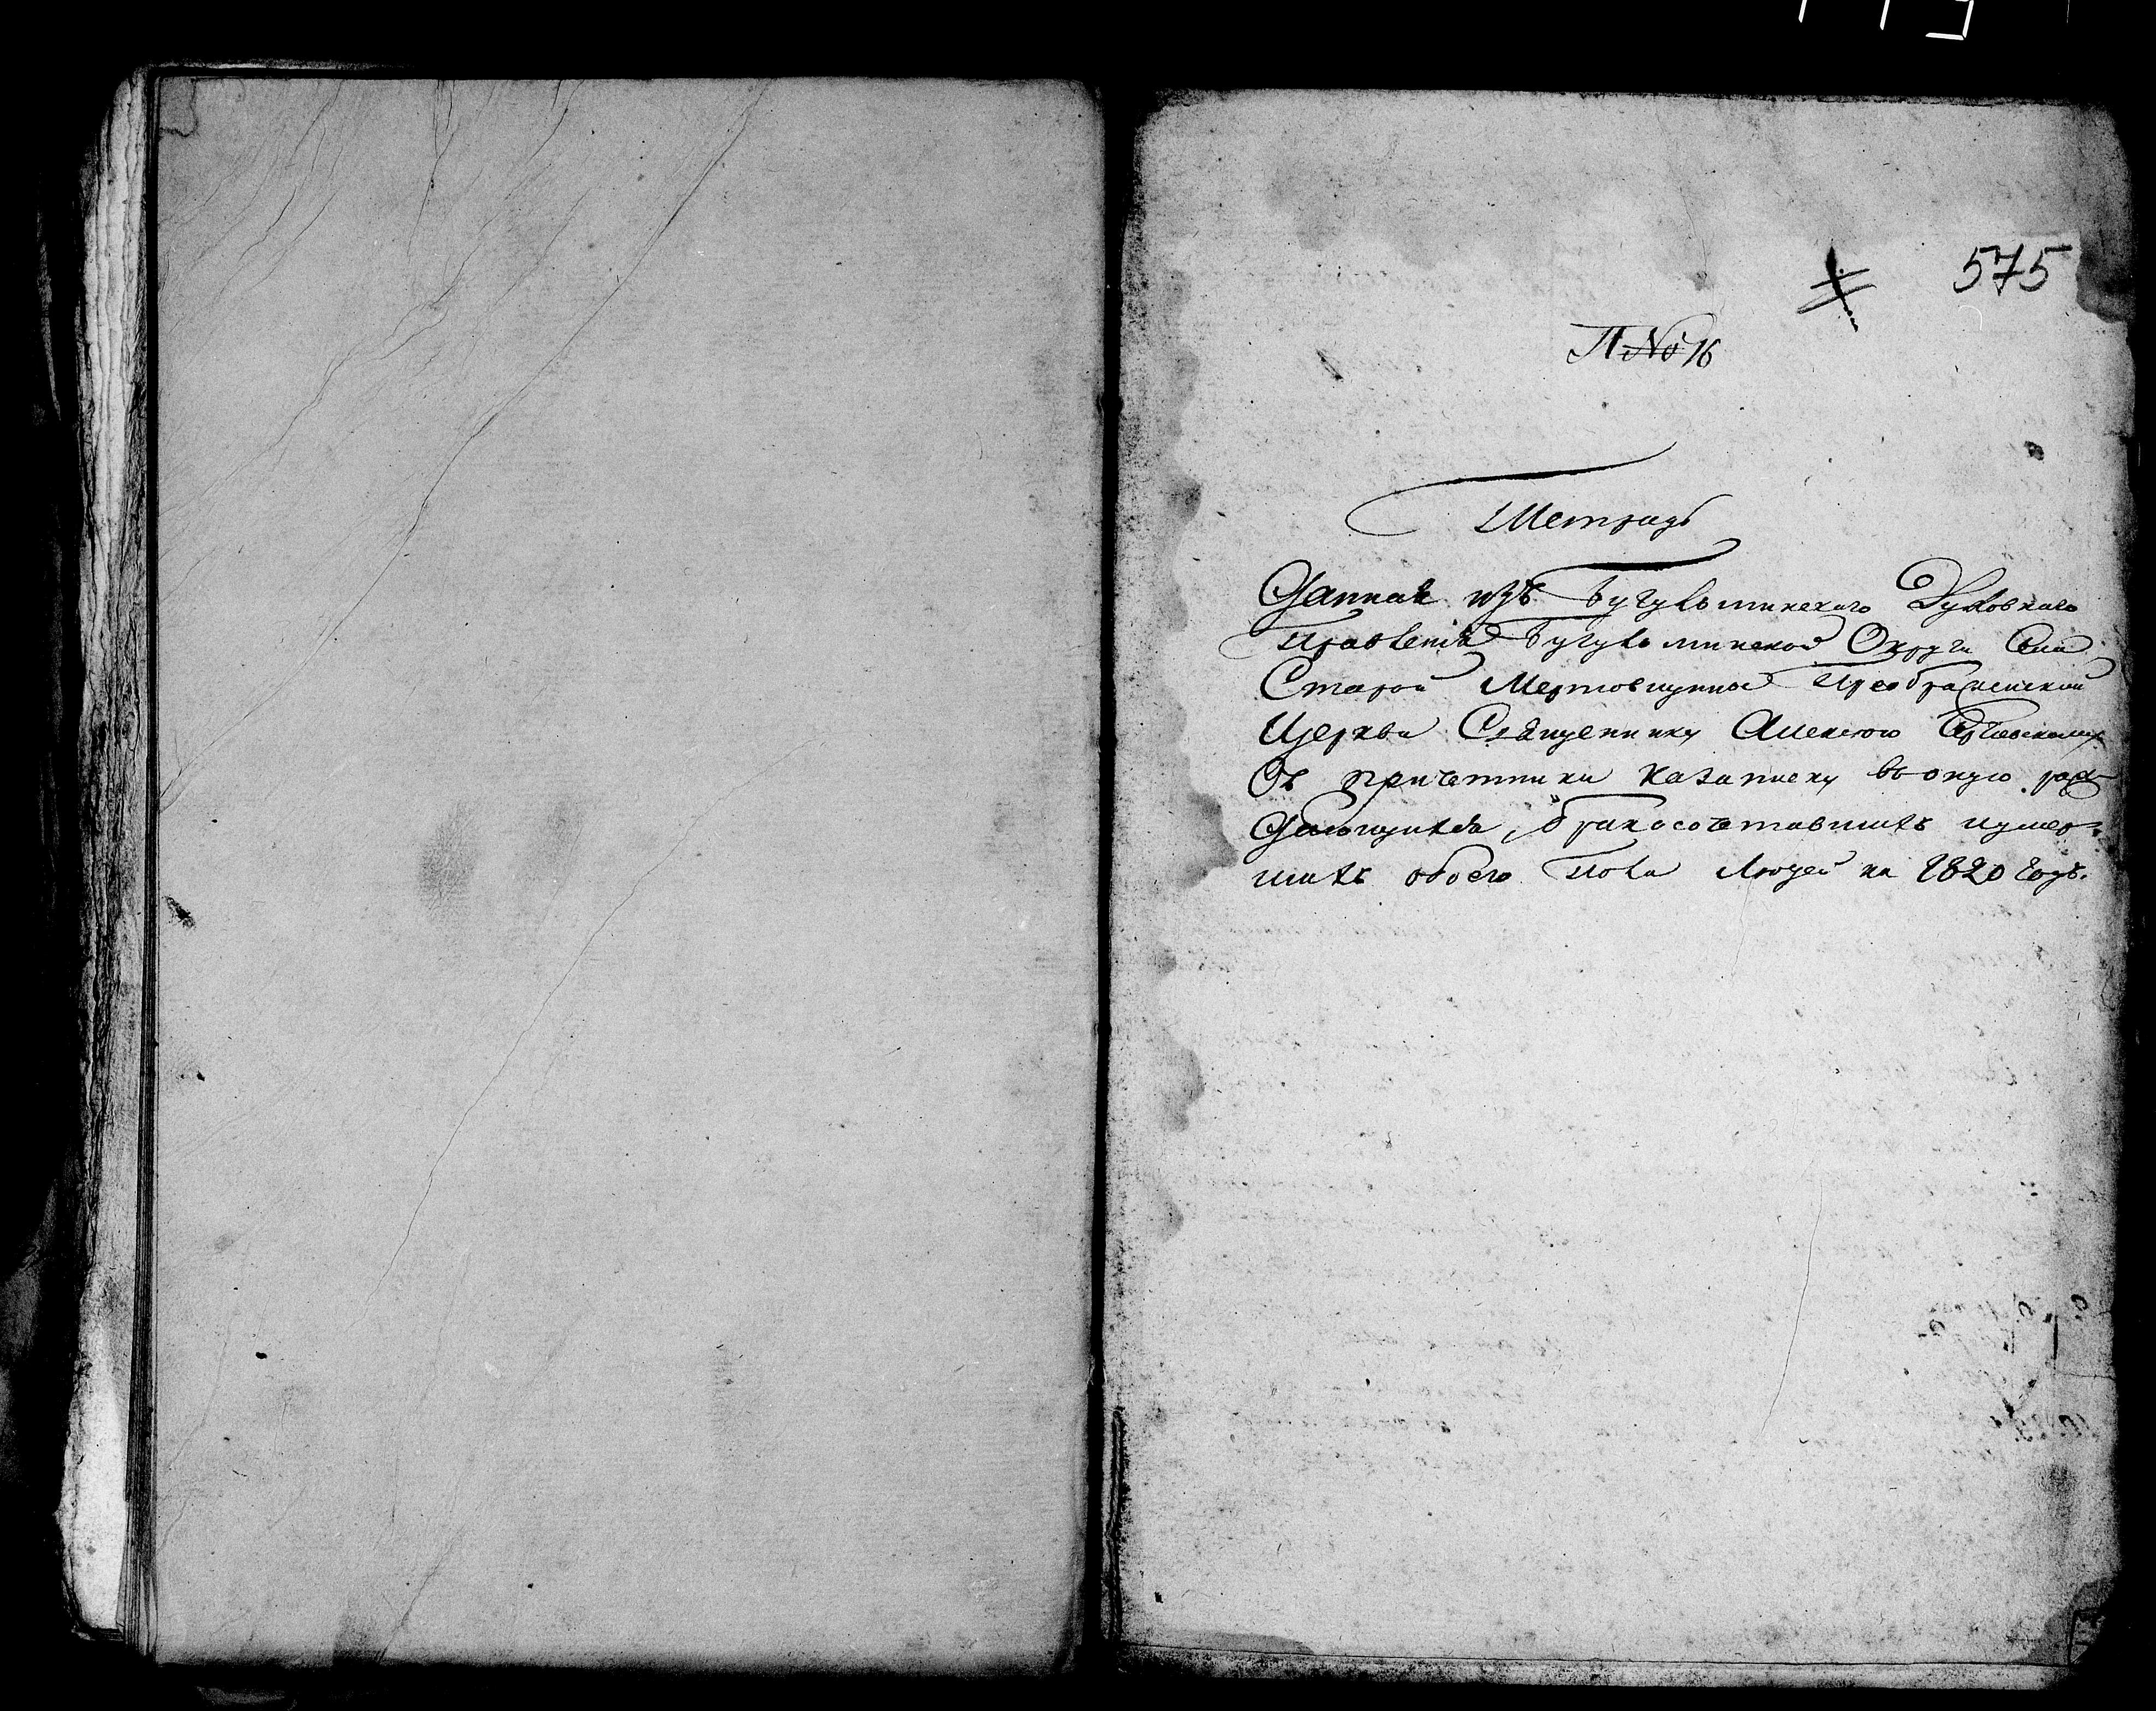 575
П №16
Тетрадь
Данная изъ Бугульминскаго Духовнаго
Правленія Бугульминской Округи Села
Старой Мертовщины Преображенской
Церкви Священнику Алексею
Съ причетники на записку въ оную раж-
дающихся, бракосочетавшихъ и умер-
шихъ обоего пола людей на 1820 годъ.